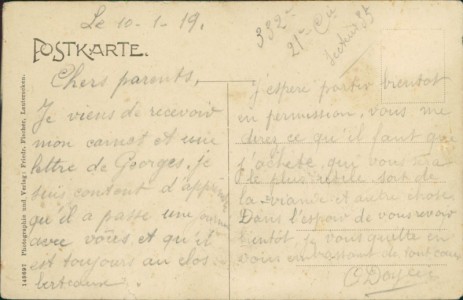 Le 10-1-19.
332e
21e Cie
Secteur 85
POSTKARTE.
Chers parents,
Je viens de recevoir
mon carnet et une
lettre de Georges. Je
suis content d'apprendre
qu'il a passé une
avec vous et qu'il
est toujours au
J'espère partir bientot
en permission, vous me
direz ce qu'il faut que
j'achete, qui vous
le plus utile soit de
la viande et autre chose.
Dans l'espoir de vous revoir
bientôt, je vous quitte en
vous embrassant de tout coeur
146987 Photographie und Verlag: Friedr. Fischer, Lauterecken.